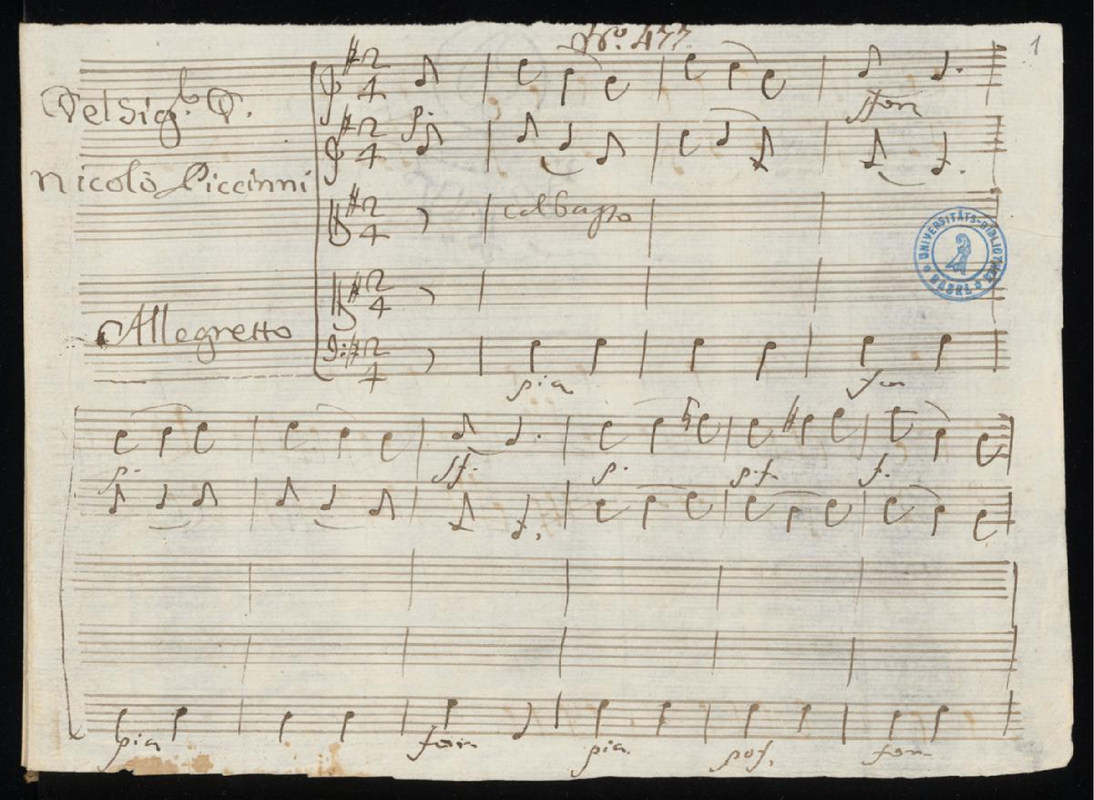 No. 477.
1
Del Sig.r D.
Nicolò Piccinni
Allegretto
2 4
p.
sfor
2 4
2 4
col basso
2 4
2 4
pia
for
UNIVERSITÄTS-BIBLIOTHEK
BASEL
p.
sf.
p.
p.f.
f.
pia
for
pia.
pof.
for